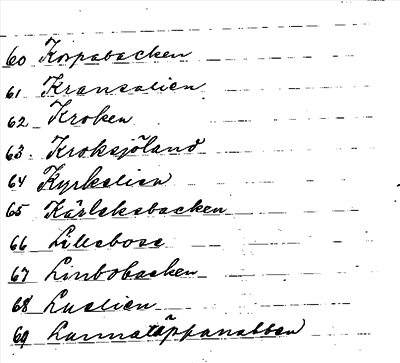 60 Korpabacken
61 Kransalien
62 Kroken
63. Kroksjöland
64 Kyrkalien
65 Kärleksbacken
66 Lillabosc
67 Linbobacken
68 Luslien
69 Lannatäppanabben